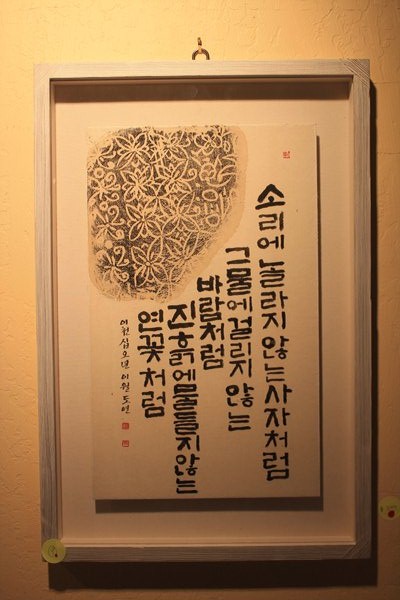 소리에 놀라지 않는 사자처럼
그물에 걸리지 않는
바람처럼
진흙에 물들지 않는
연꽃처럼
이천십오년 이월 도연